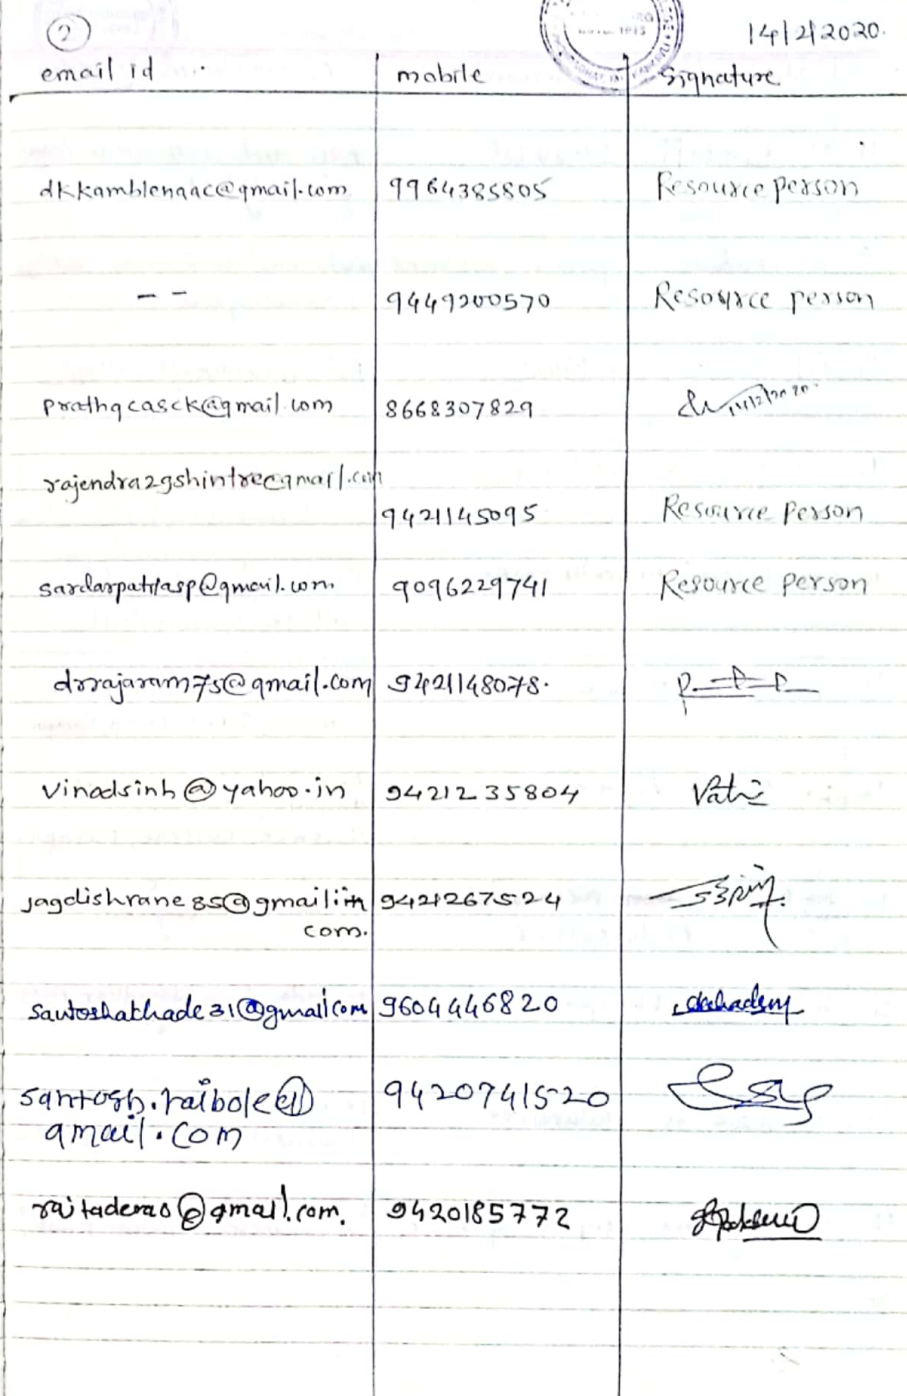 2 14/2/2020.
email id mobile Signature
dkkamblenaac@gmail.com 9964385805 Resource person
-- 9449200570 Resource person
prathqcasck@gmail.com 8668307829 14/2/2020
rajendra29shintre@gmail.com
9421145095 Resource Person
sardarpatilasp@gmail.com 9096229741 Resource Person
drrajaram75@gmail.com 9421148078.
vinodsinh@yahoo.in 9421235804
jagdishrane85@gmail 9421267524
com.
santoshathade31@gmail com 9604446820
santosh.raibole@ 9420741520
gmail.com
raitaderao@gmail.com. 9420185772